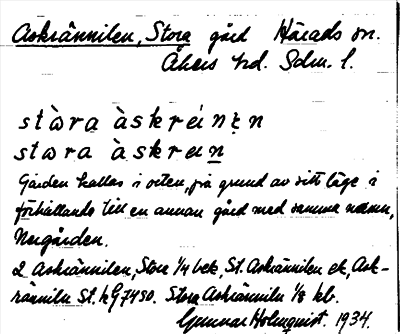 Askrännilen, Stora gård Härads sn.
Åkers hd. Sdm. l.
stàra àskréinen
stara àskrein
Gården kallas i orten, på grund av sitt läge i
förhållande till en annan gård med samma namn,
Norgården.
2 Askrännilen, Stora 1/4 bek, St. Askrännilen ek, Ask-
ränniln St. k G 7450. Stora Askränniln 1/8 kb.
Gunnar Holmquist. 1934.